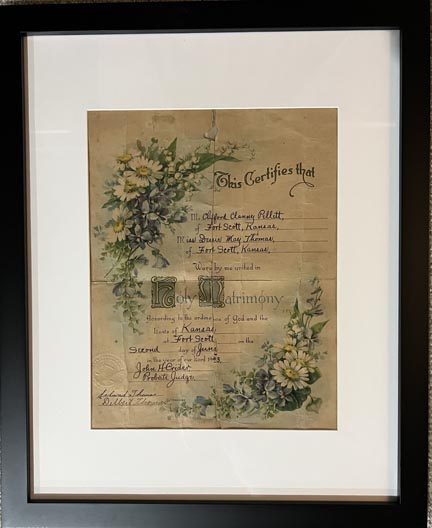 This Certifies that
Mr Clifford Clanny Pellett,
of Fort Scott, Kansas,
Miss Dessie May Thomas,
of Fort Scott, Kansas,
Were by me united in
Holy Matrimony
According to the ordinance of God and the
laws of Kansas
at Fort Scott on the
Second day of June
in the year of our Lord 19
John H Crider
Probate Judge
Thomas
Delbert Thomas